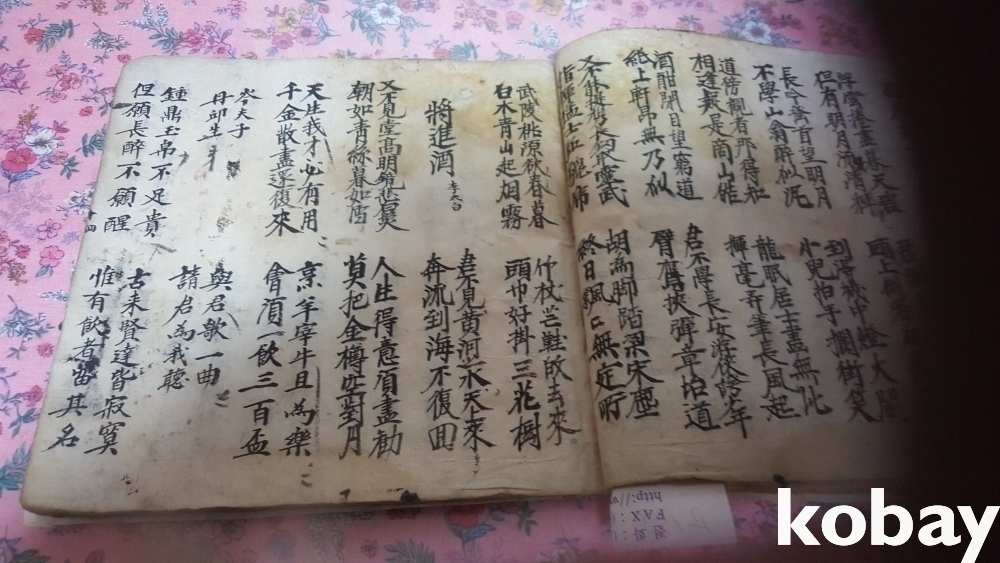 浮雲捲盡暮天碧
但有明月流清輝
到得城中燈火鬧
小兒拍手攔街笑
道傍觀者那得知
相逢疑是商山皓
龍眠居士畫無比
揮毫弄筆長風起
酒酣閉目望窮道
紙上軒昂無乃似
君不學長安游俠誇年
臂鷹挾彈章坮道
胡爲脚踏梁宋塵
終日飄二無定所
武陵桃源秋春暮
白水青山起烟霧
竹杖芒鞋的去來
頭巾好掛三花樹
將進酒 李太白
君不見黃河之水天上來
奔流到海不復回
又不見堂高明鏡悲髮
朝如青絲暮如
人生得意須盡勸
莫把金樽空對月
天生我才必有用
千金散盡還復來
烹羊宰牛且爲樂
會須一飲三百盃
岑夫子
丹邱生
與君歌一曲
請君爲我聽
鍾鼎玉帛不足貴
但願長醉不願醒
古來賢達皆寂寞
惟有飮者留其名
kobay